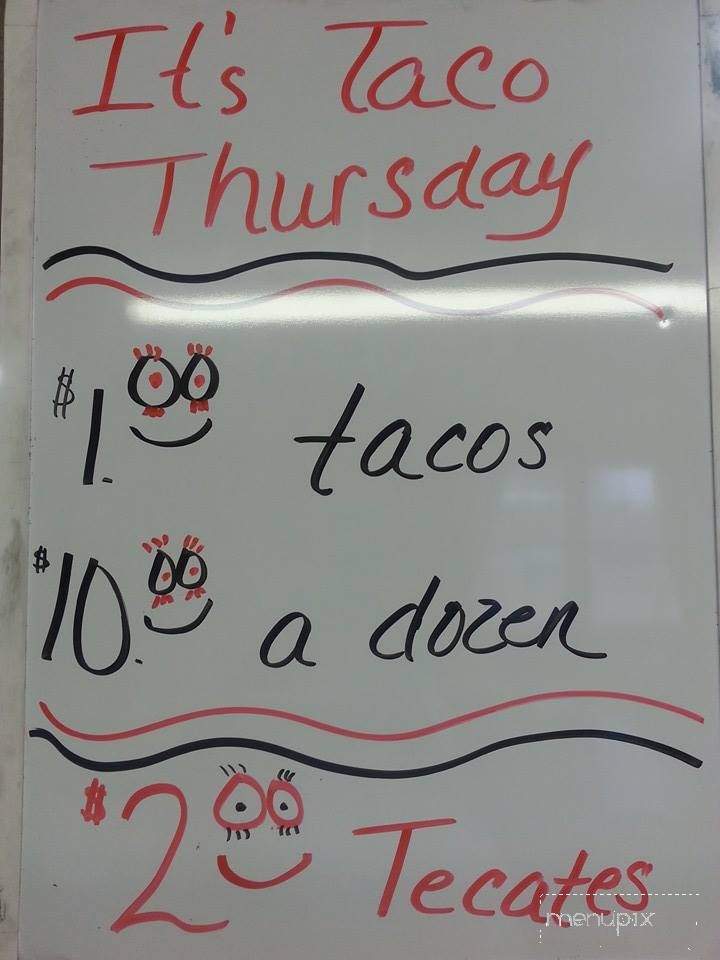 It's Taco
Thursday
$1.00 tacos
$10.00 a dozen
$200 Tecates
menupix